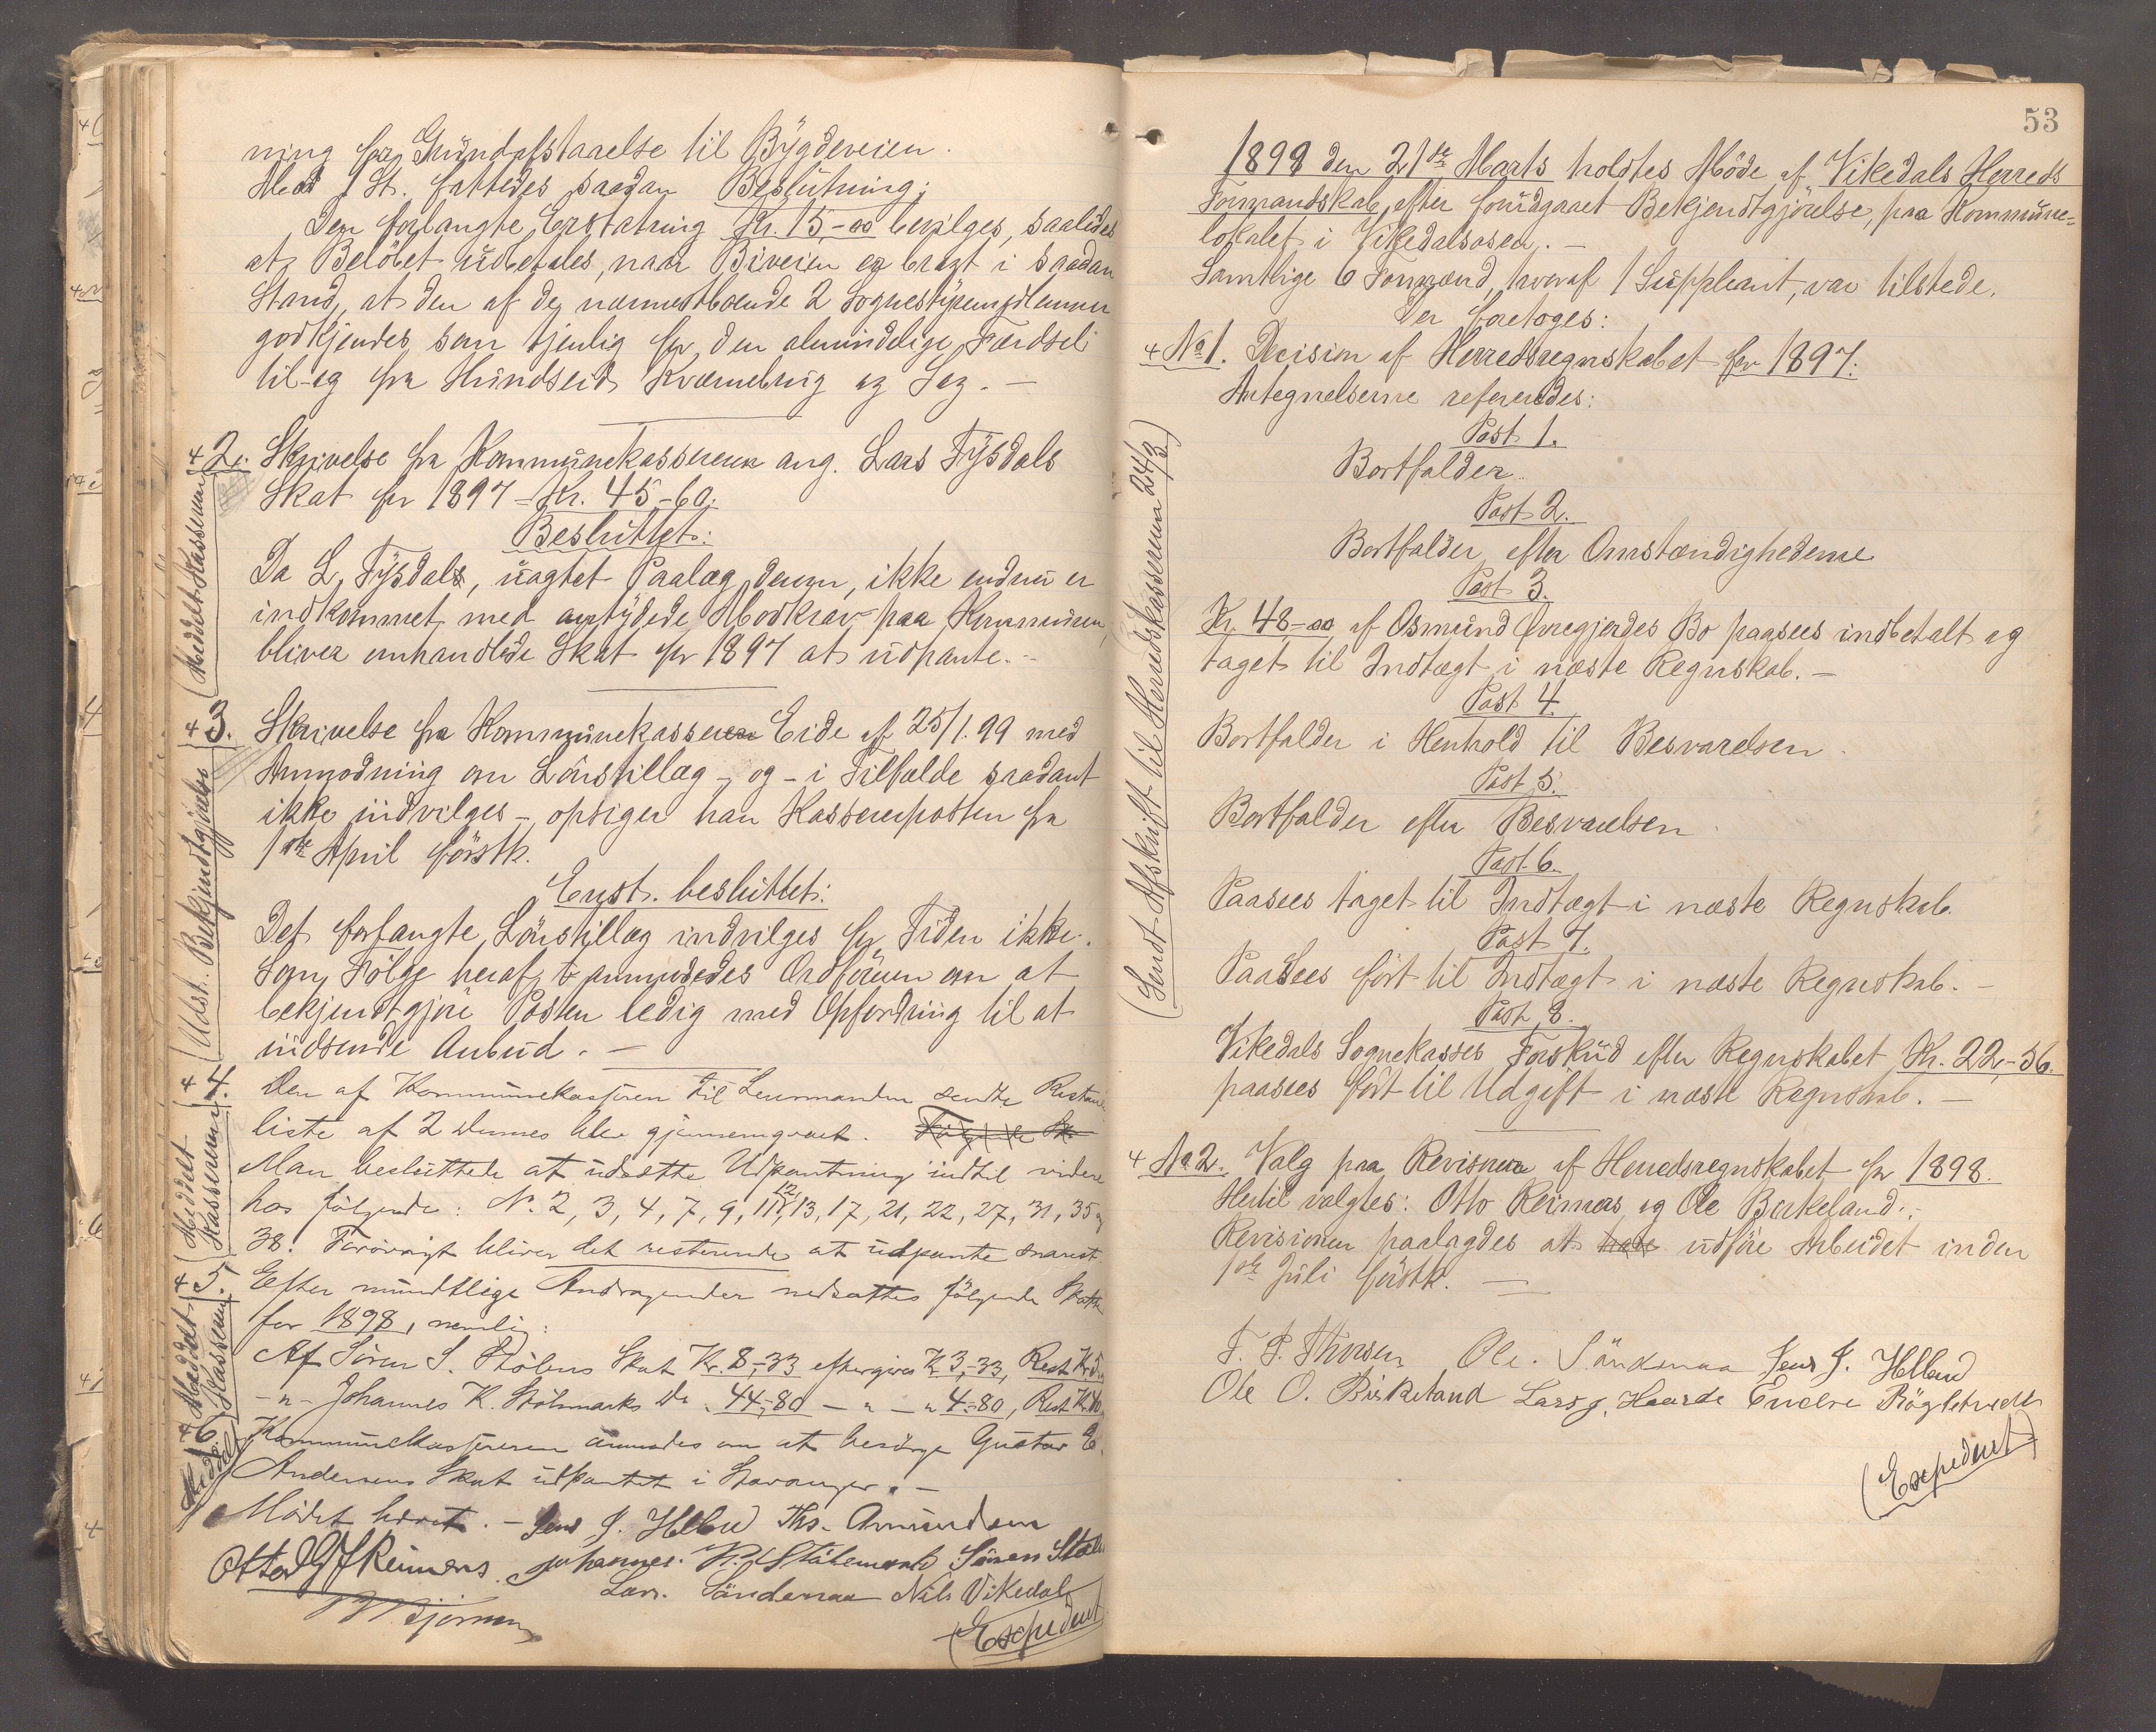 ning for Grundafstaaelse til Bygdeveien.
Mod 1 St. fattedes saadan Beslutning:
Den forlangte Erstatning Kr. 15,-00 bevilges, saaledes
at Beløbet udbetales, naar Biveien er bragt i saadan
Stand, at den af de nærmestboende 2 Sognestyremedlemmer
godkjendes som tjenlig for den almindelige Færdsel
til og fra Hundseid Kværnebrug og Sag. -
+ 2. Skrivelse fra Kommunekassereren ang. Lars Tysdals
Skat for 1897 - Kr. 45-60.
Besluttet:
Da L. Tysdal, uagtet Paalæg derom, ikke endnu er
indkommet med antydede Modkrav paa Kommunen,
bliver omhandlede Skat for 1897 at udpante. -
(Meddelt Kassereren)
+ 3. Skrivelse fra Kommunekasserer Eide af 25/1.99 med
Anmodning om Lønstillæg - og - i Tilfælde saadant
ikke indvilges - opsiger han Kassererposten fra
1ste April førstk.
Enst. besluttet:
Det forlangte Lønstillæg indvilges for Tiden ikke.
Som Følge heraf anmodedes Ordføreren om at
bekjendtgjøre Posten ledig med Opfordring til at
indsende Anbud. -
(Udst. Bekjendtgjørelse)
+ 4. Den af Kommunekasseren til Lensmanden sendte Restance
liste af 2 Dennes blev gjennemgaaet.
Man besluttede at udsætte Udpantning indtil videre
hos følgende: No 2, 3, 4, 7, 9, 11, 12, 13, 17, 21, 22, 27, 31, 35 og
38. Forøvrigt bliver det resterende at udpante snarest.
(Meddelt Kassereren)
+ 5. Efter mundtlige Andragender nedsattes følgende Skatter
for 1898, nemlig:
Af Søren S. Stølens Skat Kr. 8,-33 eftergives Kr 3,-33, Rest Kr. 5.
-"- Johannes K. Stølsmarks Do " 44,-80 - " - " 4-80, Rest Kr. 40
(Meddelt Kassereren)
+ 6. Kommunekassereren anmodes om at besørge Gustav E.
Andersens Skat udpantet i Stavanger. -
Meddelt
Mødet hævet. - Jens J. Helland Ths. Amundsen
Otto Reimers Johannes K. Stølsmark Søren Stølen
Lars Søndenaa Nils Vikedal
Bjørnsen
(Expederet)
53
1899 den 21de Marts holdtes Møde af Vikedals Herreds
Formandskab, efter foudgaaet Bekjendtgjørelse, paa Kommune-
lokalet i Vikedalsosen. -
Samtlige 6 Formænd, hvoraf 1 Suppleant, var tilstede.
Der foretoges:
+ No 1. Decision af Herredsregnskabet for 1897:
Antegnelserne refereredes:
Post 1.
Bortfalder.
Post 2.
Bortfalder efter Omstændighederne
Post 3.
Kr. 48-00 af Osmund Øvregjerdes Bo paasees indbetalt og
taget til Indtægt i næste Regnskab. -
Post 4.
Bortfalder i Henhold til Besvarelsen.
Post 5.
Bortfalder efter Besvarelsen.
Post 6.
Paasees taget til Indtægt i næste Regnskab.
Post 7.
Paasees ført til Indtægt i næste Regnskab. -
Post 8.
Vikedals Sognekasses Forskud efter Regnskabet Kr. 22,-56.
paasees ført til Udgift i næste Regnskab. -
(Sendt Afskrift til Herredskassereren 24/3)
+ No 2. Valg paa Revisorer af Herredsregnskabet for 1898.
Hertil valgtes: Otto Reimers og Ole Birkeland.
Revisionen paalagdes at have udføre Arbeidet inden
1ste Juli førstk. -
T. P. Thorsen Ole Søndenaa Jens J. Helland
Ole O. Birkeland Lars J. Haarde Endre
(Expederet)